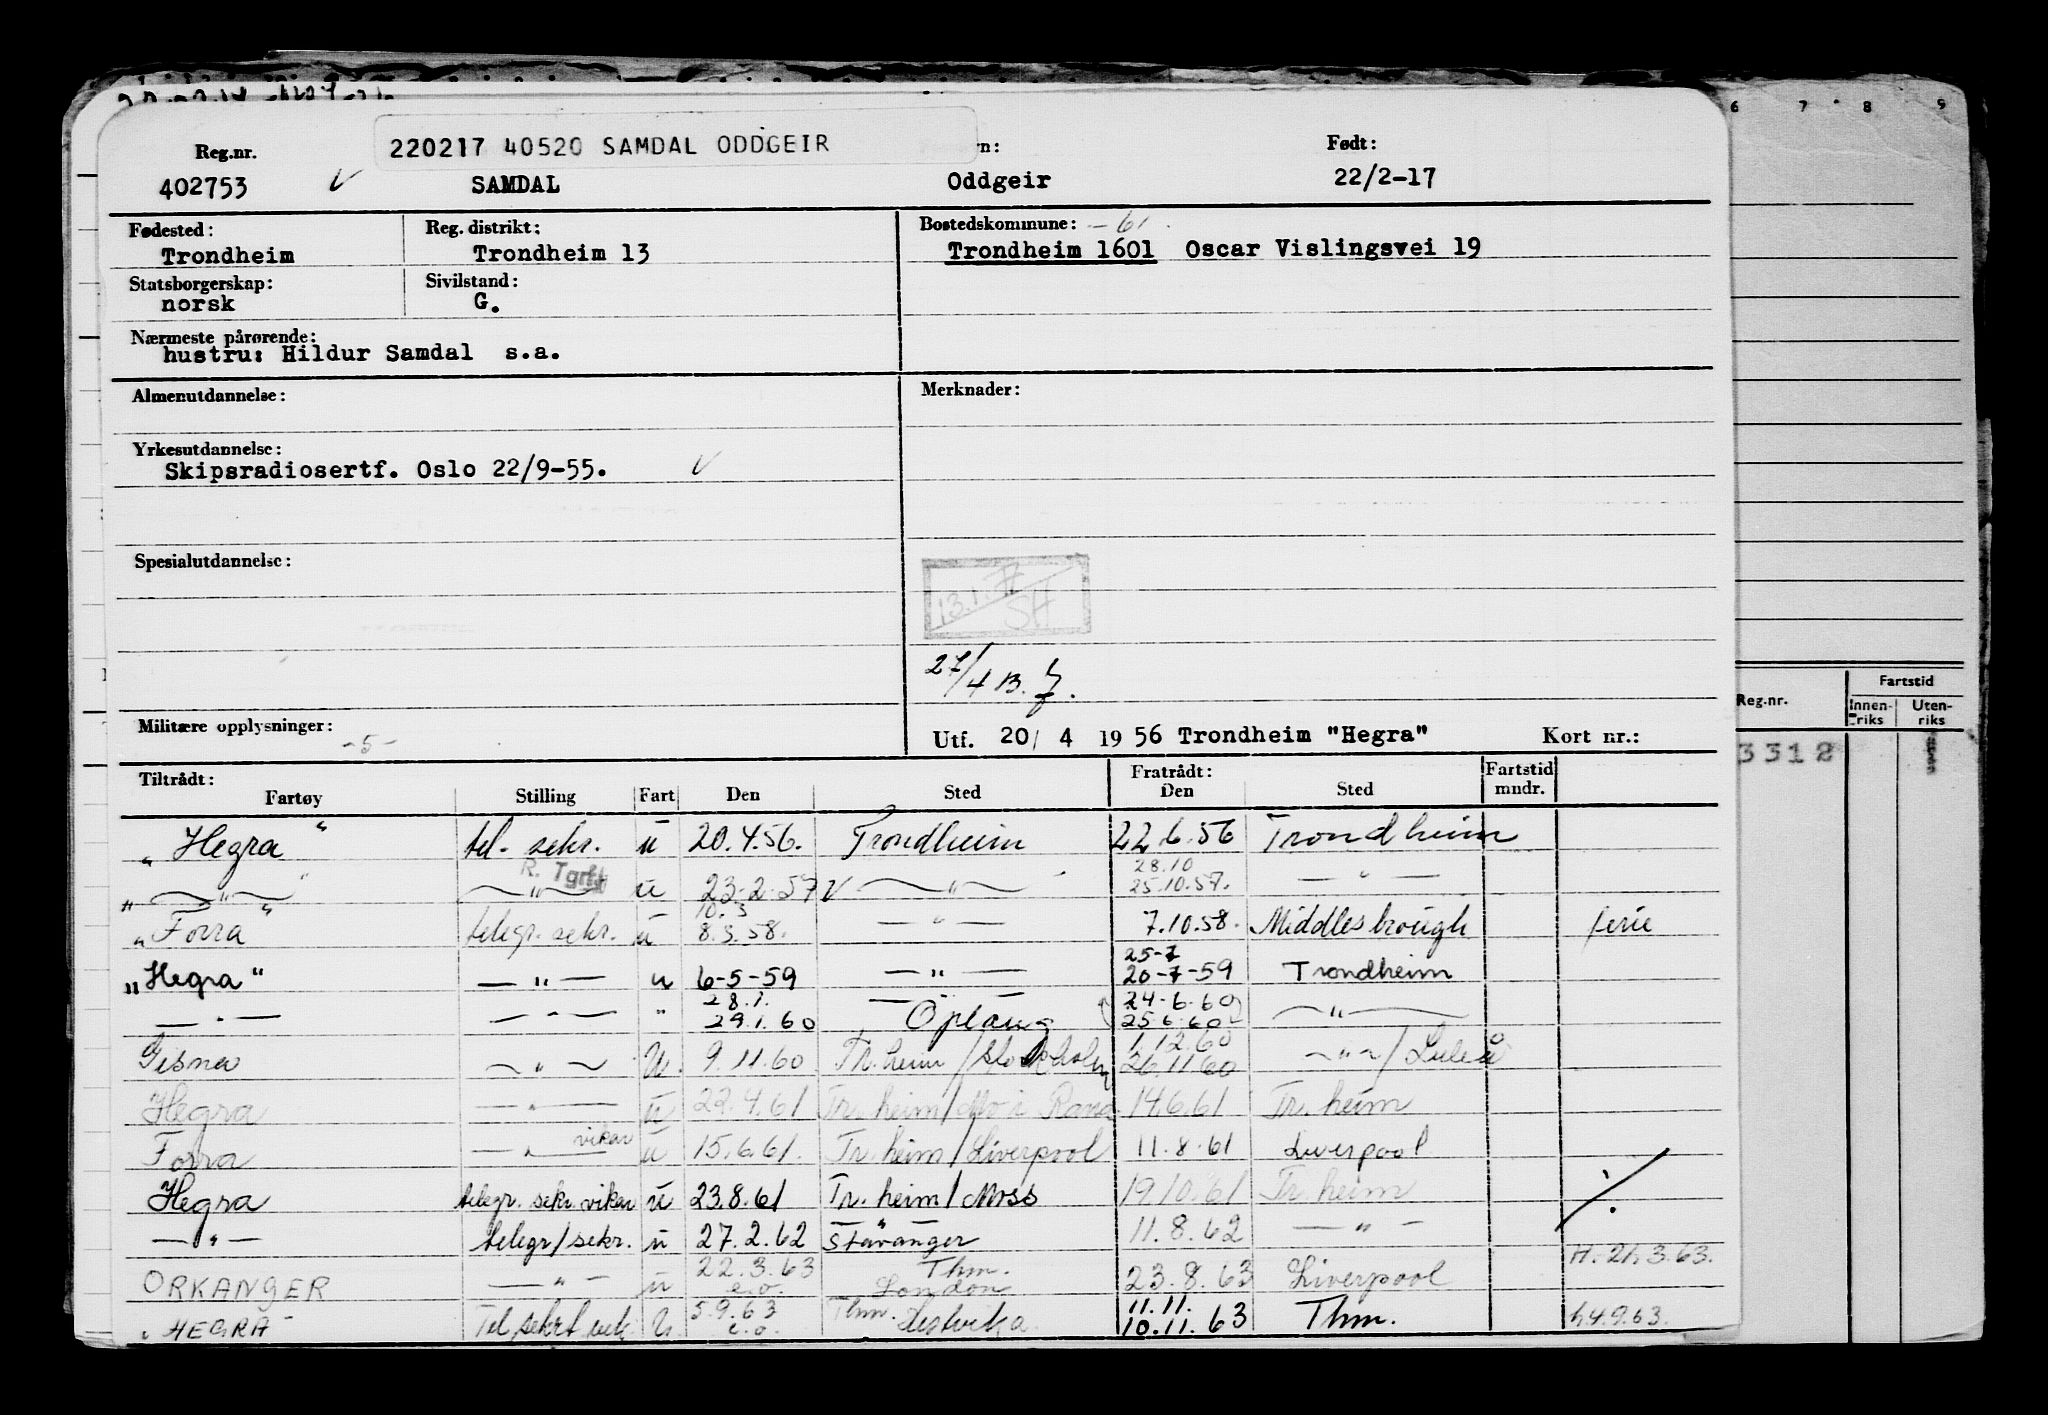 6 7 8 9
220217 40520 SAMDAL ODDGEIR
Reg.nr. n: Født:
402753 SAMDAL Oddgeir 22/2-17
Fødested: Reg. distrikt: Bostedskommune: -61.
Trondheim Trondheim 13 Trondheim 1601 Oscar Vislingsvei 19
Statsborgerskap: Sivilstand:
norsk G.
Nærmeste pårørende:
hustru: Hildur Samdal s.a.
Almenutdannelse: Merknader:
Yrkesutdannelse:
Skipsradiosertf. Oslo 22/9-55.
Spesialutdannelse:
SH
27/4 B.
Militære opplysninger: -5-
Utf. 20/ 4 1956 Trondheim "Hegra" Kort nr.:
Reg.nr. Fartstid
Innen-riks Uten-riks
3312
Tiltrådt: Fratrådt: Fartstid
Fartøy Stilling Fart Den Sted Den Sted mndr.
"Hegra" tel. sekr. u 20.4.56. Trondheim 22.6.56 Trondheim
R. Tgrf. 28.10
" — " — " — " — u 23-2-57 — " — 25.10.57. — " —
10.3
"Forra" telegr. sekr. u 8.3.58. — " — 7.10.58. Middlesbrough ferie
25-7
"Hegra" — " — u 6-5-59 — " — 20-7-59 Trondheim
28.1. 24-6-60
— " — — " — " 29.1.60 Opläng 25.6.60 — " —
1.12.60
Gisna — " — U. 9.11.60 Tr.heim/Stockholm 26.11.60 — " — / Luleå
Hegra — " — u 22.4.61 Tr.heim/Mo i Rana 14.6.61 Tr.heim
Forra — " — vikar u 15.6.61. Tr.heim/Liverpool 11.8.61 Liverpool
Hegra telegr. sekr. vikar u 23.8.61 Tr.heim/Moss 19.10.61 Tr.heim
— " — telegr/sekr. u 27.2.62 Stavanger 11.8.62 — " —
22.3.63 Thm. H. 21.3.63.
ORKANGER — " — u e.o. London 23.8.63 Liverpool
5.9.63 Thm. 11.11.
"HEGRA" Tel.sekr vik. U e.o. Hestvika 10.11.63 Thm. h4.9.63.